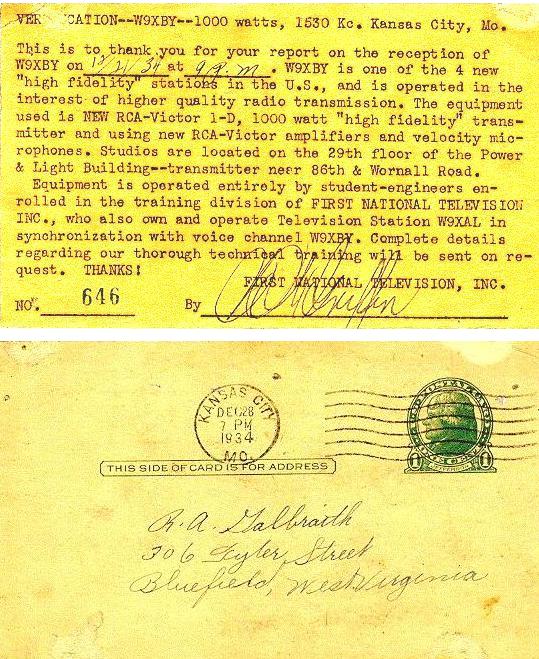 VER CATION--W9XBY--1000 watts, 1530 Kc. Kansas City, Mo.
This is to thank you for your report on the reception of
W9XBY on 12/21/34 at 9 P.M. W9XBY is one of the 4 new
"high fidelity" stations in the U.S., and is operated in the
interest of higher quality radio transmission. The equipment
used is NEW RCA-Victor 1-D, 1000 watt "high fidelity" trans-
mitter and using new RCA-Victor amplifiers and velocity mic-
rophones. Studios are located on the 29th floor of the Power
& Light Building--transmitter near 86th & Wornall Road.
Equipment is operated entirely by student-engineers en-
rolled in the training division of FIRST NATIONAL TELEVISION
INC., who also own and operate Television Station W9XAL in
synchronization with voice channel W9XBY. Complete details
regarding our thorough technical training will be sent on re-
quest. THANKS!
FIRST NATIONAL TELEVISION, INC.
NO. 646 By
KANSAS CITY
DEC 28
7 PM
1934
MO.
1 1
THIS SIDE OF CARD IS FOR ADDRESS
R. A. Galbraith
306 Tyler Street
Bluefield, West Virginia